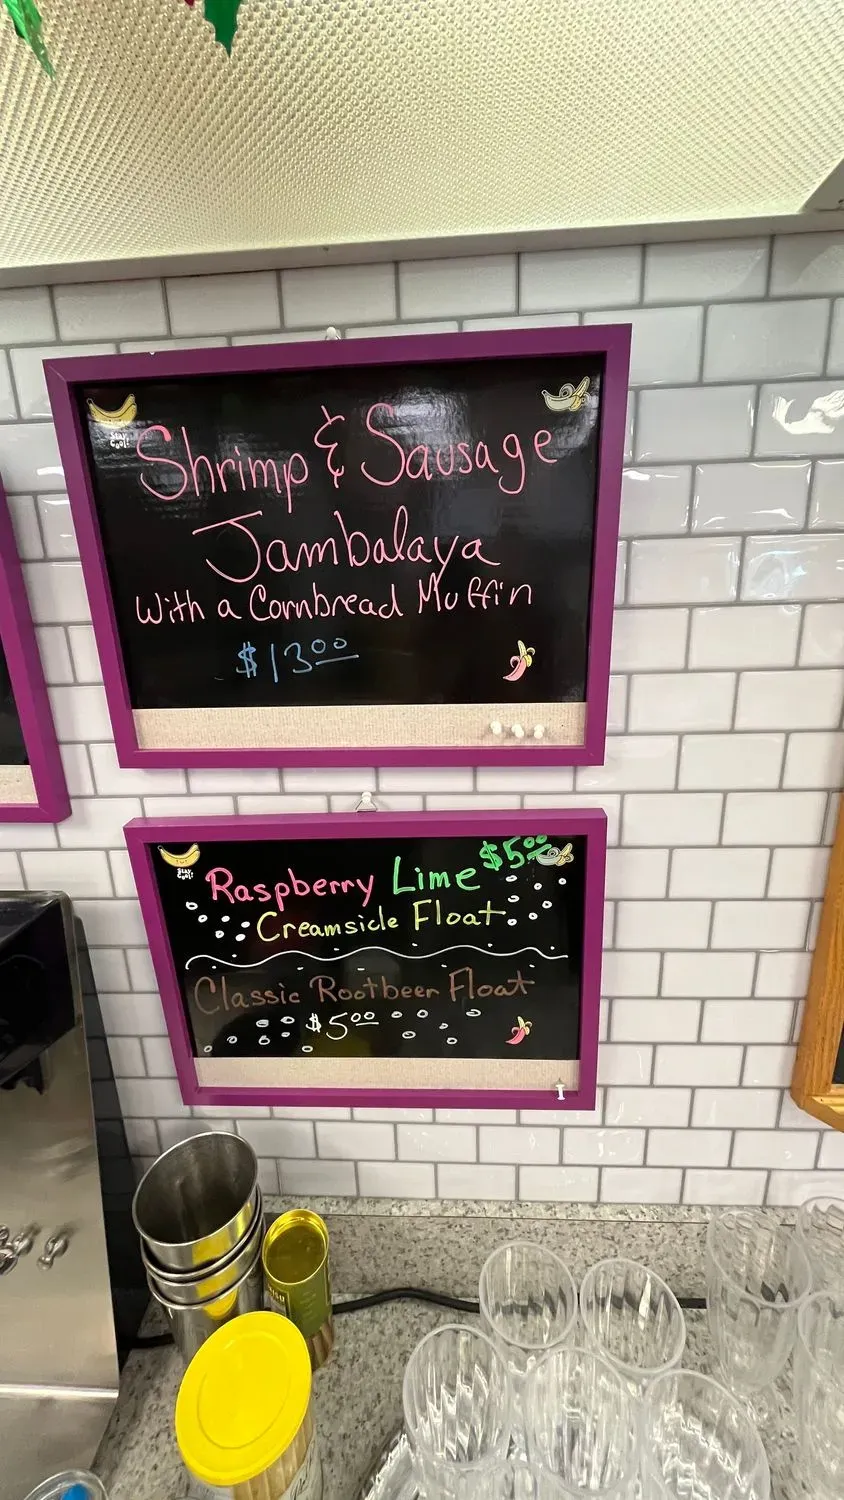 Stay Cool!
Shrimp & Sausage
Jambalaya
With a Cornbread Muffin
$13.00
Stay Cool!
$5.00
Raspberry Lime
Creamsicle Float
Classic Rootbeer Float
$5.00